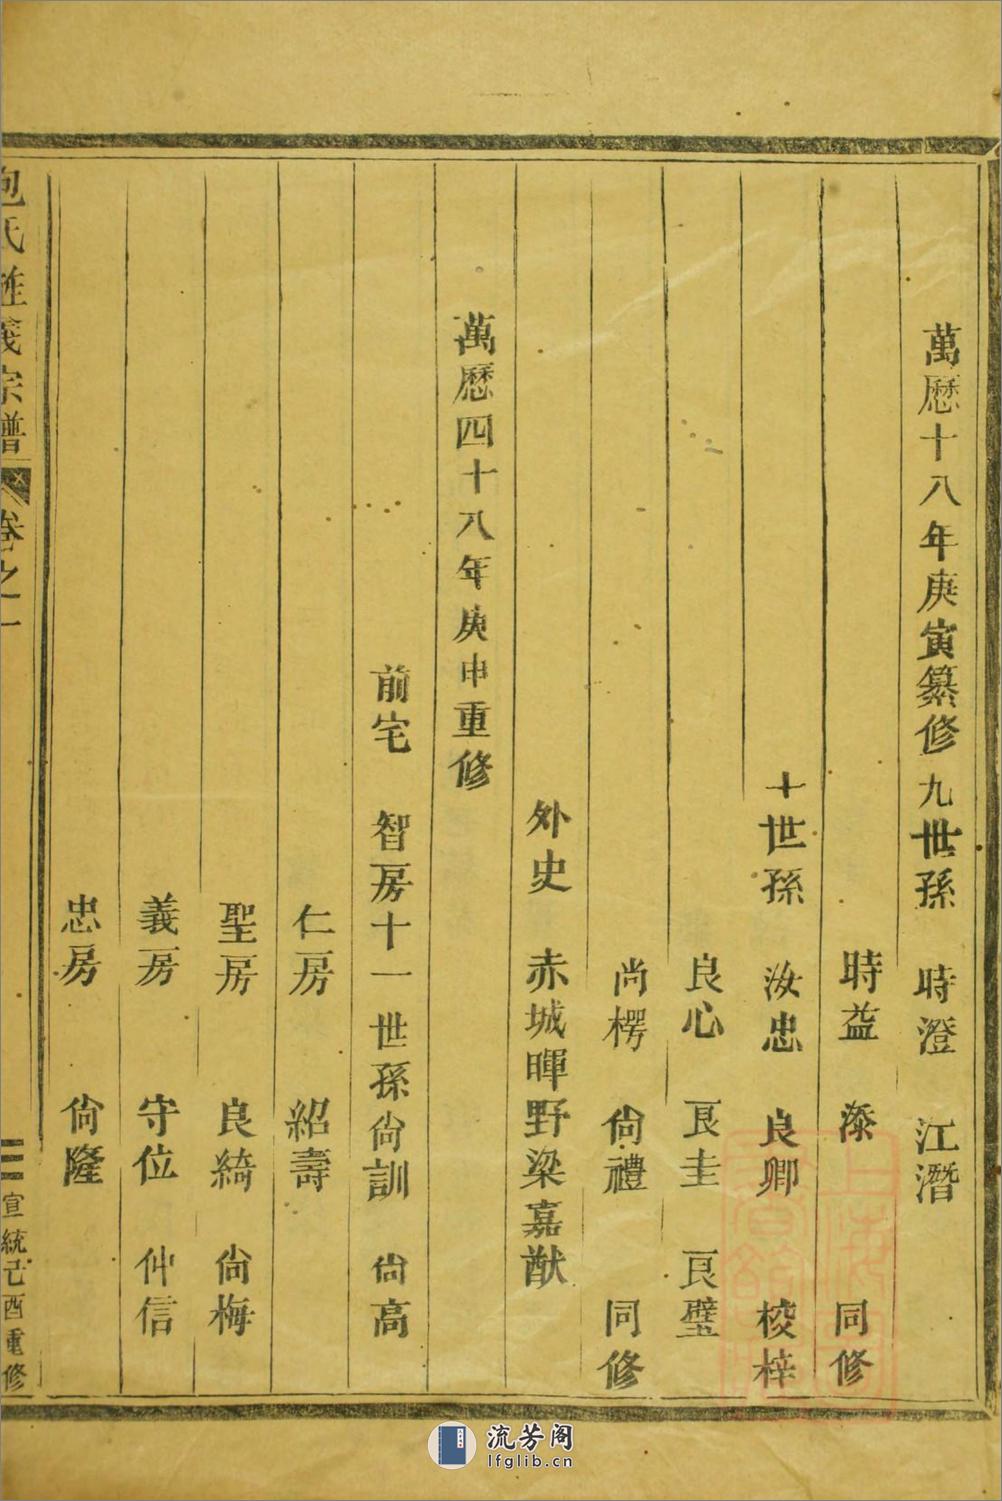 萬曆十八年庚寅纂修九世孫 時澄 江潛
時益 漆 同修
十世孫 汝忠 良卿 梭梓
良心 良圭 良璧
尚楞 尙禮 同修
外史 赤城暉野梁嘉猷
萬曆四十八年庚申重修
前宅 智房十一世孫尙訓 尙高
仁房 紹壽
聖房 良綺 尙梅
義房 守位 仲信
忠房 尙隆
包氏 義宗譜 卷之一 三 宣統己酉重修
流芳阁
lfglib.cn